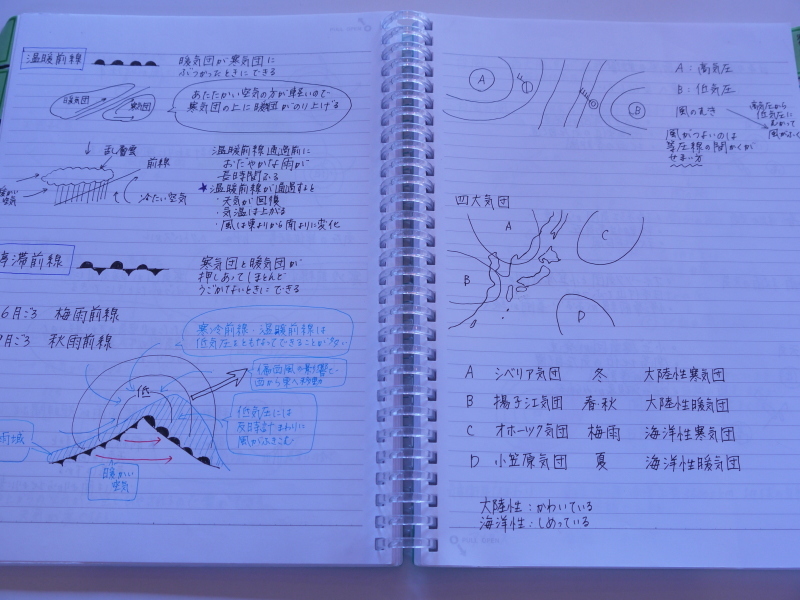 温暖前線
暖気団が寒気団に
ぶつかったときにできる
暖気団
寒気団
あたたかい空気の方が軽いので
寒気団の上に暖気団がのり上げる
乱層雲
前線
暖かい
空気
冷たい空気
温暖前線通過前に
おだやかな雨が
長時間ふる
★温暖前線が通過すると
・天気が回復
・気温は上がる
・風は東よりから南よりに変化
停滞前線
寒気団と暖気団が
押しあってほとんど
うごかないときにできる
6月ごろ 梅雨前線
9月ごろ 秋雨前線
寒冷前線・温暖前線は
低気圧をともなってできることが多い
偏西風の影響で
西から東へ移動
低
低気圧には
反時計まわりに
風がふきこむ
雨域
暖かい
空気
A
B
A:高気圧
B:低気圧
風のむき
高気圧から
低気圧に
むかって
風がふく
風がつよいのは
等圧線の間かくが
せまい方
四大気団
A
C
B
D
A シベリア気団 冬 大陸性寒気団
B 揚子江気団 春・秋 大陸性暖気団
C オホーツク気団 梅雨 海洋性寒気団
D 小笠原気団 夏 海洋性暖気団
大陸性:かわいている
海洋性:しめっている